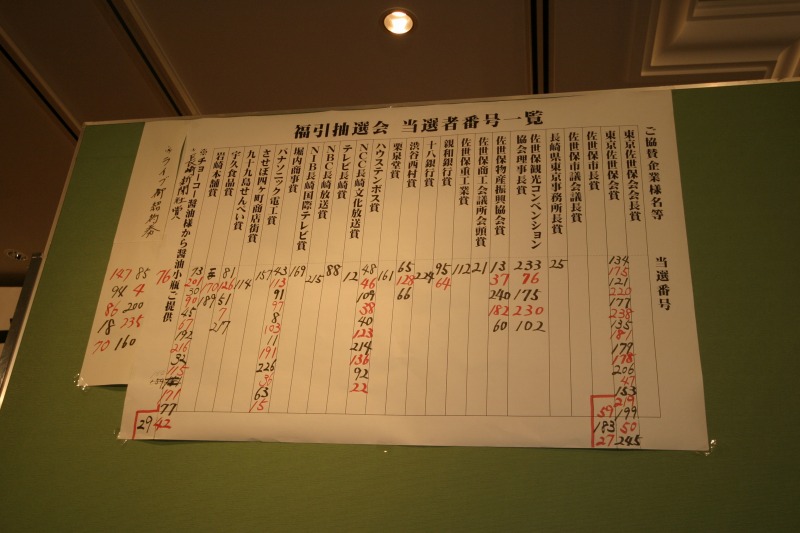 福引抽選会 当選者番号一覧
ご協賛企業様名等 当選番号
東京佐世保会会長賞 134 175 121 220 177 238 135 181 177 178 206 47 153 219 199 50 245
東京佐世保会賞 59 183 27
佐世保市長賞
佐世保市議会議長賞
長崎県東京事務所長賞 25
佐世保観光コンベンション協会理事長賞 233 76 175 230 102
佐世保物産振興協会賞 13 37 240 182 60
佐世保商工会議所会頭賞 21
佐世保重工業賞 112
親和銀行賞 95 64
十八銀行賞 224
渋谷西村賞 65 128 66
栗泉堂賞 161
ハウステンボス賞
NCC長崎文化放送賞 48 46 109 38 40 123 214 136 92 22
テレビ長崎賞 12
NBC長崎放送賞 88
NIB長崎国際テレビ賞 215
堀内商事賞 169
パナソニック電工賞 43 13 91 97 8 103 11 191 226 36 63 15
させぼ四ヶ町商店街賞 157
九十九島せんべい賞 114
宇久食品賞 81 126 51 7 217
岩崎本舗賞 170 189
※チョーコー醤油様から醤油小瓶ご提供 73 201 30 90 45 67 192 216 32 115 171 77 42
長崎新聞社賞 76
29
147 85
94 4
86 200
18 235
70 160